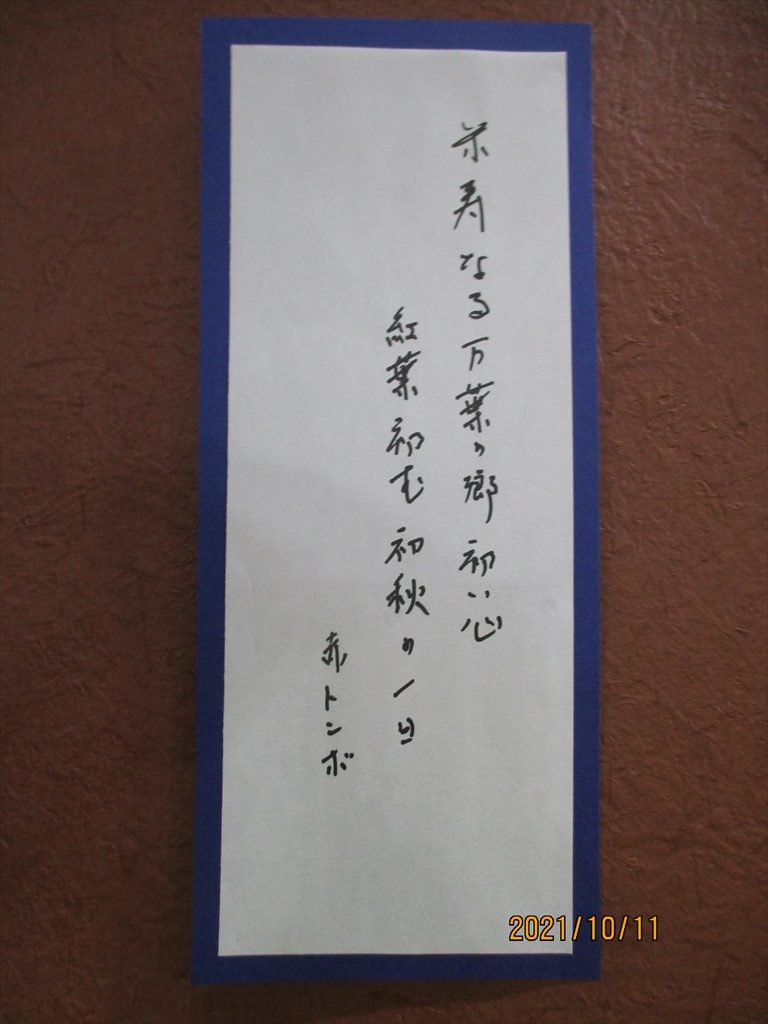 米寿なる万葉の郷初い心
紅葉初む初秋の一日
赤トンボ
2021/10/11